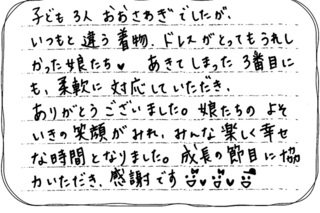 子ども3人 おおさわぎでしたが、
いつもと違う着物、ドレスがとってもうれし
かった娘たち♥ あきてしまった3番目に
も、柔軟に対応していただき、
ありがとうございました。娘たちのよそ
いきの笑顔がみれ、みんな楽しく幸せ
な時間となりました。成長の節目に協
力いただき、感謝です